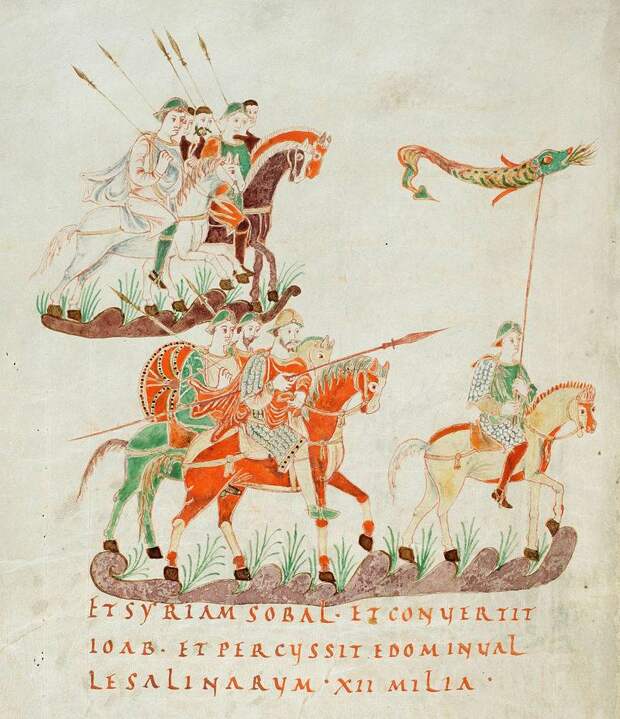 ET SYRIAM SOBAL · ET CONVERTIT
IOAB · ET PERCUSSIT EDOM IN VAL
LE SALINARUM · XII MILIA ·